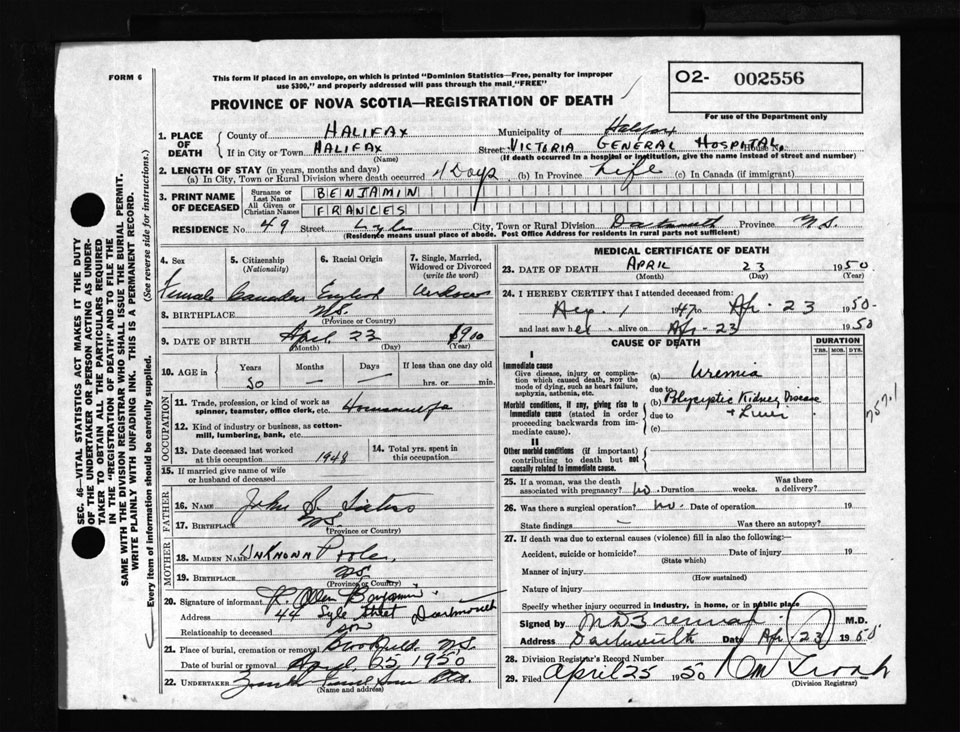 FORM 6
This form if placed in an envelope, on which is printed "Dominion Statistics—Free, penalty for improper
use $300," and properly addressed will pass through the mail, "FREE"
O2- 002556
For use of the Department only
PROVINCE OF NOVA SCOTIA—REGISTRATION OF DEATH
1. PLACE OF DEATH
County of HALIFAX Municipality of Halifax
If in City or Town HALIFAX Street VICTORIA GENERAL HOSPITAL House No.
(Name) (If death occurred in a hospital or institution, give the name instead of street and number)
2. LENGTH OF STAY (in years, months and days)
(a) In City, Town or Rural Division where death occurred 11 Days (b) In Province Life (c) In Canada (if immigrant)
3. PRINT NAME OF DECEASED
Surname or Last Name BENJAMIN
All Given or Christian Names FRANCES
RESIDENCE No. 49 Street Lyle City, Town or Rural Division Dartmouth Province N.S.
(Residence means usual place of abode. Post Office Address for residents in rural parts not sufficient)
4. Sex Female
5. Citizenship (Nationality) Canadian
6. Racial Origin English
7. Single, Married, Widowed or Divorced (write the word)
8. BIRTHPLACE N.S.
(Province or Country)
9. DATE OF BIRTH April 23 1900
(Month) (Day) (Year)
10. AGE in Years Months Days If less than one day old
50 — — hrs. or min.
OCCUPATION
11. Trade, profession, or kind of work as
spinner, teamster, office clerk, etc. Housewife
12. Kind of industry or business, as cotton-
mill, lumbering, bank, etc.
13. Date deceased last worked
at this occupation 1948
14. Total yrs. spent in this occupation
15. If married give name of wife
or husband of deceased
FATHER
16. Name John S.
17. Birthplace N.S.
(Province or Country)
MOTHER
18. MAIDEN NAME UNKNOWN Poole
19. BIRTHPLACE N.S.
(Province or Country)
20. Signature of informant R. Allen Benjamin
Address 44 Lyle Street Dartmouth
Relationship to deceased son
21. Place of burial, cremation or removal Brookfield N.S.
Date of burial or removal April 25, 1950
22. UNDERTAKER
(Name and address)
MEDICAL CERTIFICATE OF DEATH
23. DATE OF DEATH APRIL 23 1950
(Month) (Day) (Year)
24. I HEREBY CERTIFY that I attended deceased from:
1 1947 to Ap. 23 1950
and last saw her alive on Ap. 23 1950
CAUSE OF DEATH DURATION
YRS. MOS. DYS.
I
Immediate cause
Give disease, injury or complication which caused death, NOT the mode of dying, such as heart failure, asphyxia, asthenia, etc.
(a) Uremia
due to
Morbid conditions, if any, giving rise to immediate cause (stated in order proceeding backwards from immediate cause).
(b) Polycystic Kidney Disease
due to + Liver
(c)
757.1
II
Other morbid conditions (if important) contributing to death but not causally related to immediate cause.
25. If a woman, was the death
associated with pregnancy? no. Duration weeks. Was there a delivery?
26. Was there a surgical operation? no. Date of operation 19
State findings — Was there an autopsy?
27. If death was due to external causes (violence) fill in also the following:—
Accident, suicide or homicide? Date of injury 19
(State which)
Manner of injury
(How sustained)
Nature of injury
Specify whether injury occurred in industry, in home, or in public place
Signed by M.D.
Address Dartmouth Date Ap. 23 1950
28. Division Registrar's Record Number
29. Filed April 25 1950
(Division Registrar)
SEC. 46—VITAL STATISTICS ACT MAKES IT THE DUTY
OF THE UNDERTAKER OR PERSON ACTING AS UNDER-
TAKER TO OBTAIN ALL THE PARTICULARS REQUIRED
IN THE "REGISTRATION OF DEATH" AND TO FILE THE
SAME WITH THE DIVISION REGISTRAR WHO SHALL ISSUE THE BURIAL PERMIT.
WRITE PLAINLY WITH UNFADING INK. THIS IS A PERMANENT RECORD.
Every item of information should be carefully supplied. (See reverse side for instructions.)